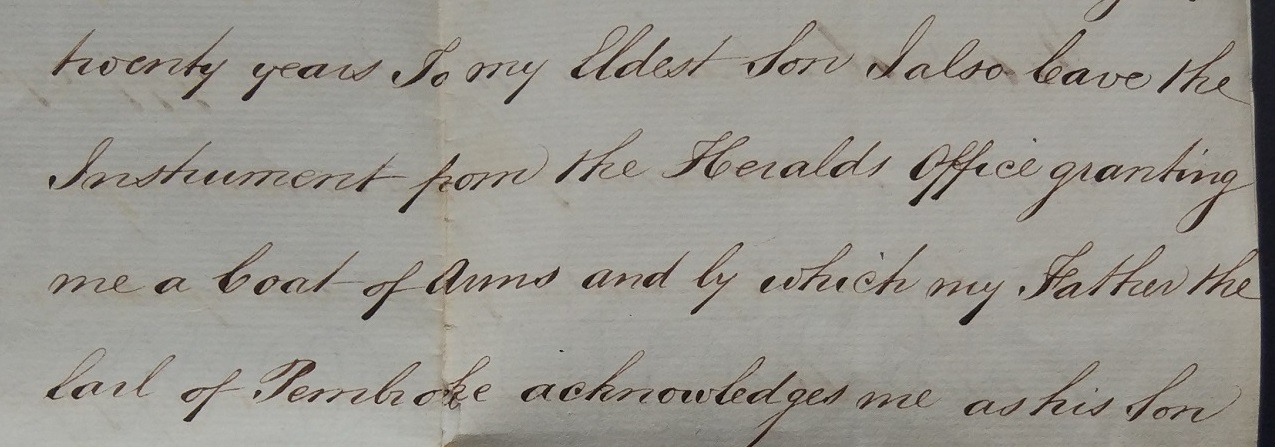 twenty years To my Eldest Son I also leave the
Instrument from the Heralds Office granting
me a Coat of Arms and by which my Father the
Earl of Pembroke acknowledges me as his Son